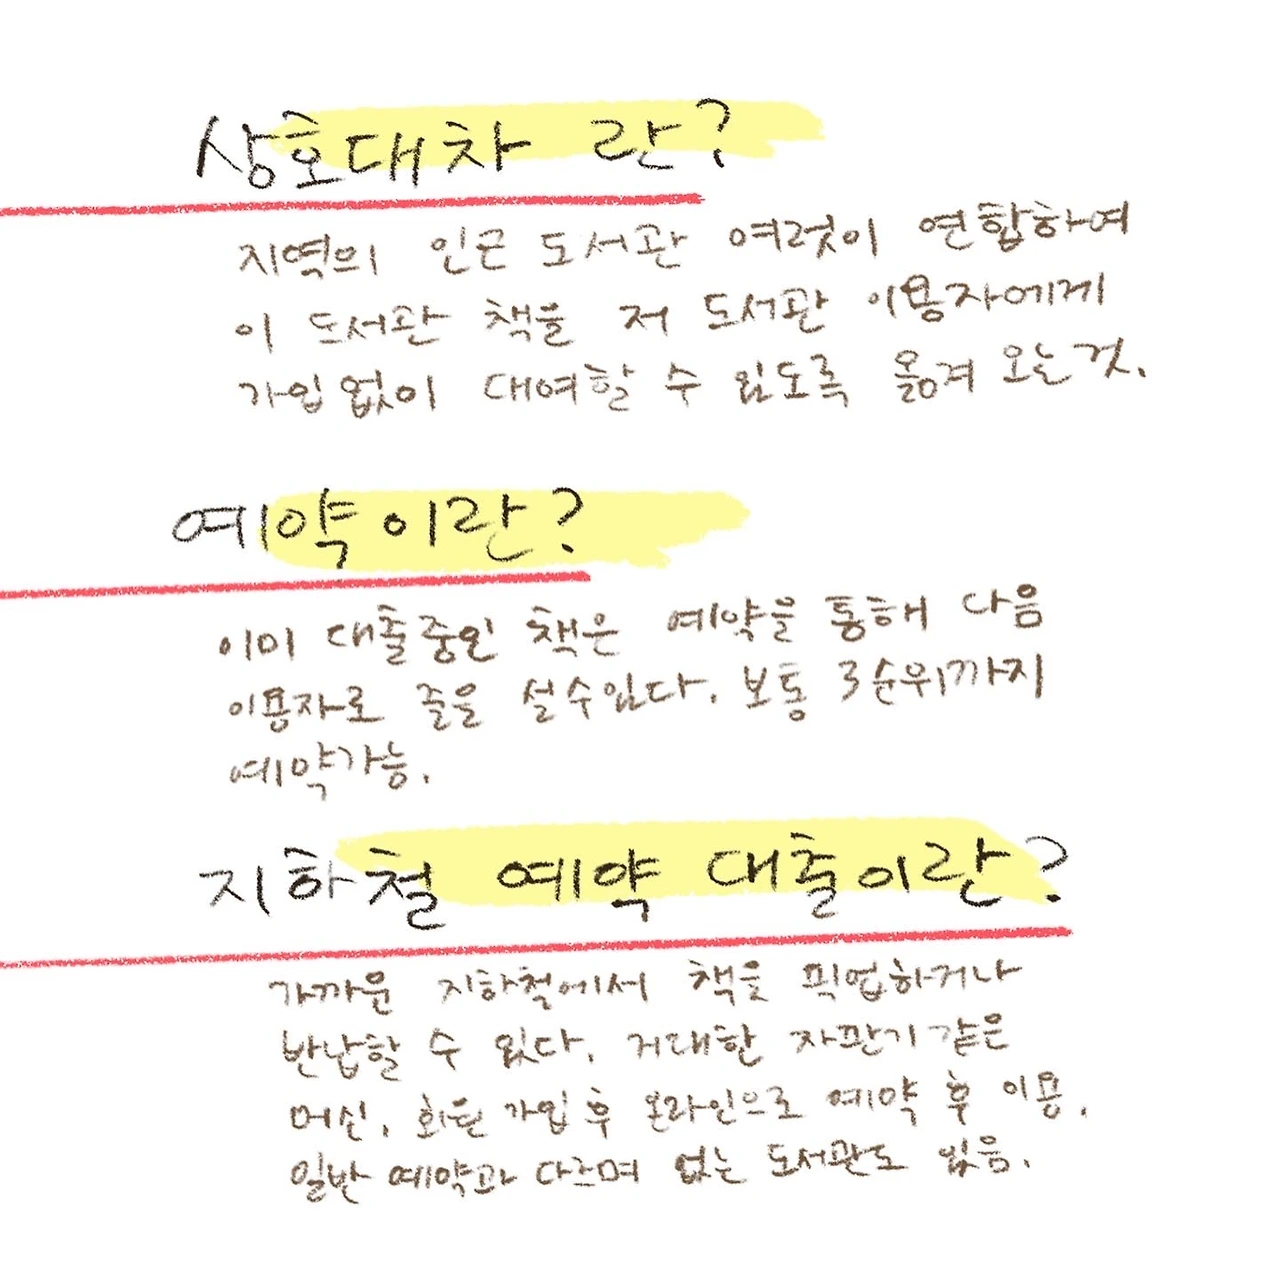 상호대차 란?
지역의 인근 도서관 여럿이 연합하여
이 도서관 책을 저 도서관 이용자에게
가입없이 대여할 수 있도록 옮겨 오는 것.
예약이란?
이미 대출중인 책은 예약을 통해 다음
이용자로 줄을 설수있다. 보통 3순위까지
예약가능.
지하철 예약 대출이란?
가까운 지하철에서 책을 픽업하거나
반납할 수 있다. 거대한 자판기 같은
머신. 회원 가입 후 온라인으로 예약 후 이용.
일반 예약과 다르며 없는 도서관도 있음.